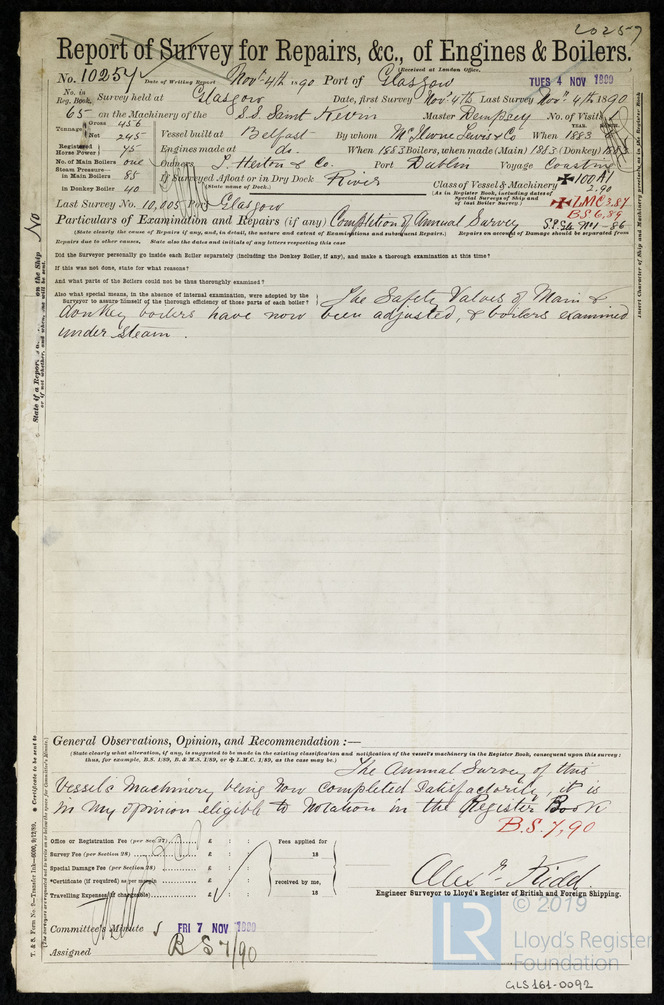 20257
Report of Survey for Repairs, &c., of Engines & Boilers.
(Received at London Office.
No. 10257 Date of Writing Report Nov. 4th 1890 Port of Glasgow TUES 4 NOV 1890
No. in Reg. Book. Survey held at Glasgow Date, first Survey Nov. 4th Last Survey Nov. 4th 1890
65 on the Machinery of the S.S. Saint Kevin Master Dempsey No. of Visits
Tonnage Gross 456
Net 245 Vessel built at Belfast By whom McIlwaine Lewis & Co When 1883
Registered Horse Power 75 Engines made at do. When 1883 Boilers, when made (Main) 1883 (Donkey) 1883
No. of Main Boilers one Owners Port Dublin Voyage Coasting
Steam Pressure— in Main Boilers 85 If Surveyed Afloat or in Dry Dock River
(State name of Dock.)
in Donkey Boiler 40
Class of Vessel & Machinery ✠100A1
(As in Register Book, including dates of Special Surveys of Ship and of last Boiler Survey.)
2.90
✠LMC 3.87
B.S 6,89
Last Survey No. 10,005 Port Glasgow
Particulars of Examination and Repairs (if any) Completion of Annual Survey
(State clearly the cause of Repairs if any, and, in detail, the nature and extent of Examinations and subsequent Repairs.) Repairs on account of Damage should be separated from
Repairs due to other causes. State also the dates and initials of any letters respecting this case
Did the Surveyor personally go inside each Boiler separately (including the Donkey Boiler, if any), and make a thorough examination at this time?
If this was not done, state for what reasons?
And what parts of the Boilers could not be thus thoroughly examined?
Also what special means, in the absence of internal examination, were adopted by the Surveyor to assure himself of the thorough efficiency of those parts of each boiler?
The Safety Valves of Main &
donkey boilers have now been adjusted, & boilers examined
under steam.
General Observations, Opinion, and Recommendation :—
(State clearly what alteration, if any, is suggested to be made in the existing classification and notification of the vessel's machinery in the Register Book, consequent upon this survey;
thus, for example, B.S. 1/89, B. & M.S. 1/89, or ✠ L.M.C. 1/89, as the case may be.)
The Annual Survey of this
Vessel's Machinery being now completed Satisfactorily, it is
in my opinion eligible to notation in the Register Book
B.S. 7,90
Office or Registration Fee (per Sec. 27) £ : : Fees applied for
Survey Fee (per Section 28) £ : : 18
Special Damage Fee (per Section 28) £ : :
*Certificate (if required) as per margin £ : : received by me,
Travelling Expenses (if chargeable) £ : : 18
Alex. Kidd.
Engineer Surveyor to Lloyd's Register of British and Foreign Shipping.
Committee's Minute FRI 7 NOV 1890
Assigned B S 7/90
LR
© 2019
Lloyd's Register
Foundation
GLS161-0092